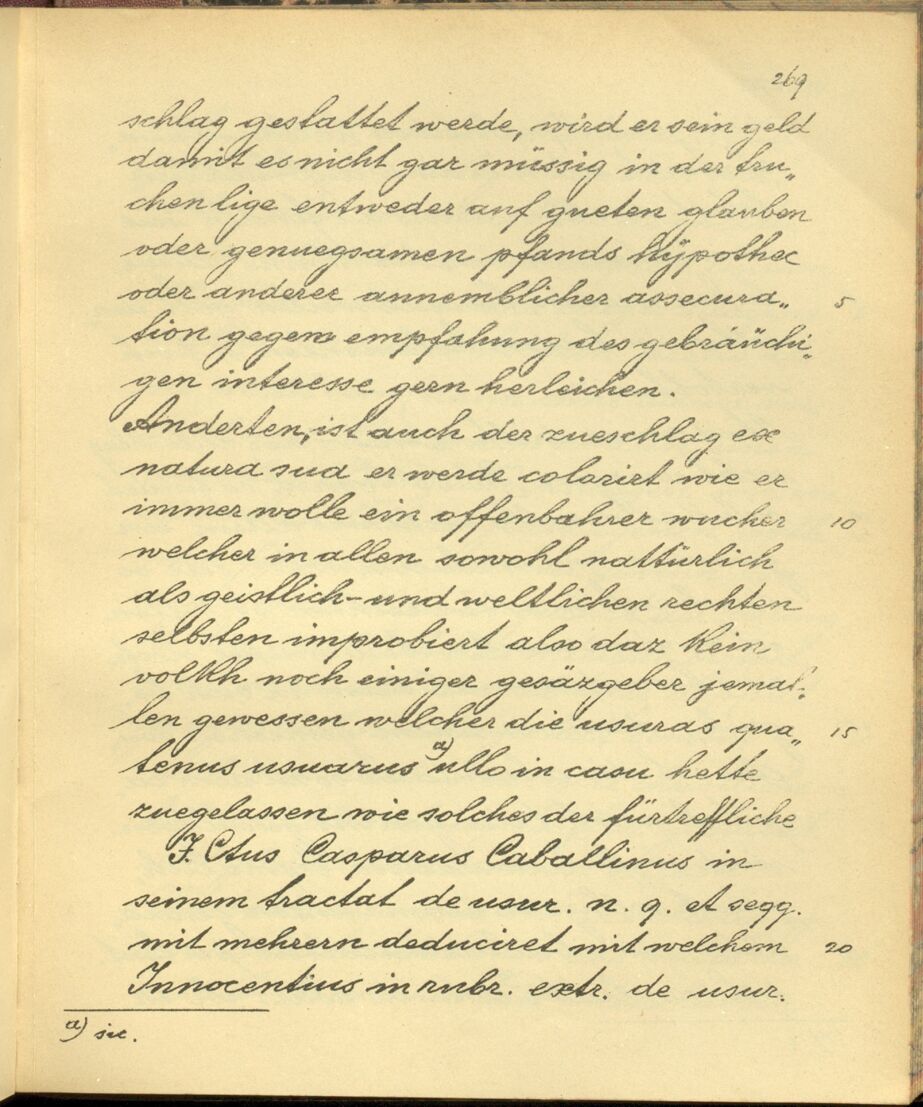 269
schlag gestattet werde, wird er sein geld
damit es nicht gar müssig in der tru„
chen lige entweder auf gueten glauben
oder genuegsamen pfands hÿpothec
oder anderer annemblicher assecura„ 5
tion gegem empfahung des gebräuchi„
gen interesse gern herleichen.
Anderten, ist auch der zueschlag ex
natura sua er werde colorirt wie er
immer wolle ein offenbahrer wucher 10
welcher in allen sowohl nattürlich
als geistlich- und weltlichen rechten
selbsten improbiert also daz kein
volkh noch einiger gesäzgeber jemal„
len gewessen welcher die usuras qua„ 15
tenus usuarus a) ullo in casu hette
zuegelassen wie solches der fürtreffliche
J. Ctus Casparus Caballinus in
seinem tractat de usur. n. 9. et segg.
mit mehrern deduciret mit welchem 20
Innocentius in rubr. extr. de usur.
a) sic.